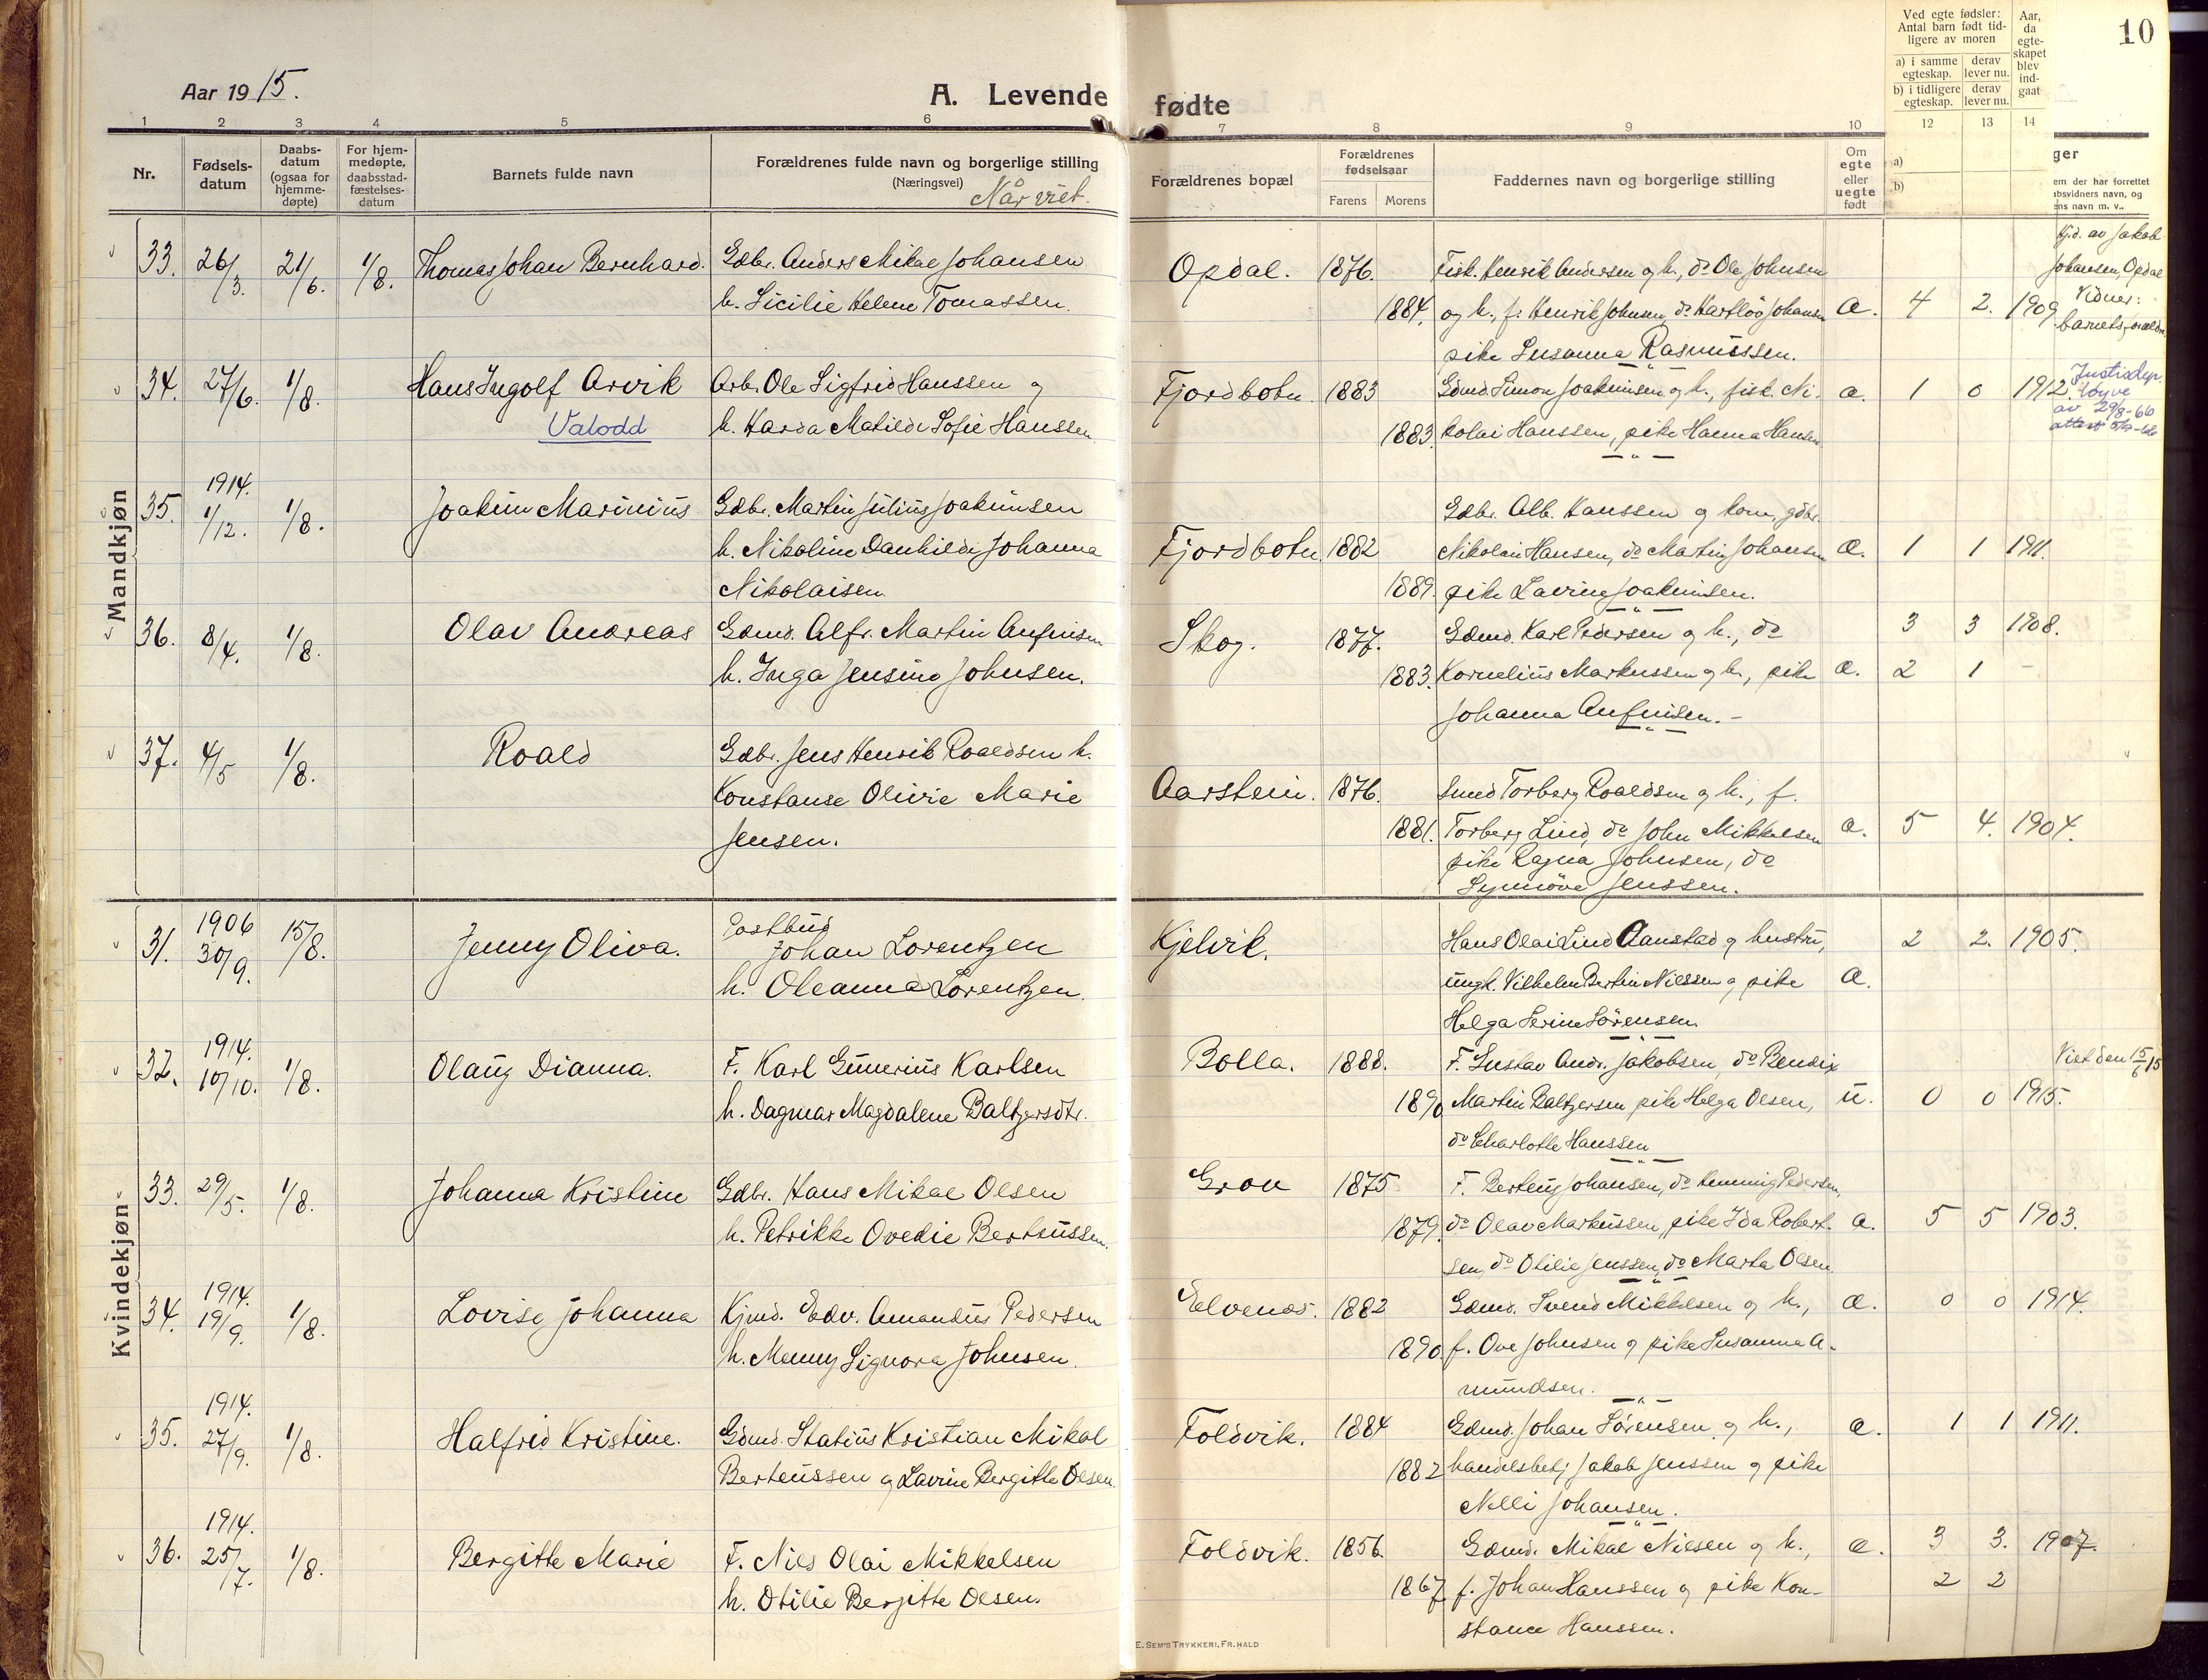 Aar 1915.
A. Levende fødte
10
Ved egte fødsler:
Antal barn født tid-
ligere av moren
a) i samme egteskap.
derav lever nu.
b) i tidligere egteskap.
derav lever nu.
Aar, da egte-skapet blev ind-gaat
1 2 3 4 5 6 7 8 9 10 12 13 14
Nr.
Fødsels-datum
Daabs-datum (ogsaa for hjemme-døpte)
For hjem-medøpte, daabsstad-fæstelses-datum
Barnets fulde navn
Forældrenes fulde navn og borgerlige stilling
(Næringsvei)
Når viet.
Forældrenes bopæl
Forældrenes fødselsaar
Farens
Morens
Faddernes navn og borgerlige stilling
Om egte eller uegte født
a)
b)
ger
em der har forrettet
absvidners navn, og
ens navn m. v..
Mandkjøn
33. 26/3. 21/6. 1/8. Thomas Johan Bernhard. Gdbr. Anders Mikal Johansen Opdal. 1876. Fisk. Henrik Andersen og h., do Ole Johnsen
h. Sicilie Helene Tomassen. 1884. og h., f. Henrik Johnsen, do Hartløv Johansen Æ. 4 2. 1909
pike Susanna Rasmussen.
Hj.d. av Jakob
Johansen, Opdal
Vidner:
barnets forældre
34. 27/6. 1/8. Hans Ingolf Arvik Arb. Ole Sigfrid Hanssen og Fjordbotn 1883 Gdmd. Simon Joakimsen og h., fisk. Ni- æ. 1 0 1912.
Valodd h. Harda Matilde Sofie Hanssen. 1883. kolai Hanssen, pike Hanna Hansen
Justisdep.
løyve
av 29/8-66
35. 1914. 1/12. 1/8. Joakim Marinius Gdbr. Martin Julius Joakimsen Gdbr. Alb. Hanssen og kone, gdbr.
h. Nikoline Danhilde Johanna Fjordbotn. 1882 Nikolai Hansen, do Martin Johansen Æ. 1 1 1911.
Nikolaisen 1889. pike Lavine Joakimsen.
36. 8/4. 1/8. Olav Andreas Gdmd. Alfr. Martin Anfinsen Skog. 1877. Gdmd. Karl Pedersen og h., do 3 3 1908.
h. Inga Jensine Johnsen. 1883. Kornelius Markussen og h., pike æ. 2 1 -
Johanna Anfinsen. -
37. 4/5 1/8. Roald Gdbr. Jens Henrik Roaldsen h. Aarstein. 1876. Torberg Roaldsen og h., f.
Konstanse Olivie Marie 1881. Torberg Lind, do John Mikkelsen æ. 5 4. 1904.
Jensen. pike Ragna Johnsen, do
Synnöve Jenssen.
Kvindekjøn
31. 1906 30/9. 15/8. Jenny Oliva. Postbud
Johan Lorentzen Kjelvik. Hans Olai Lind Aanstad og hustru, 2 2. 1905.
h. Oleanna Lorentzen. ungk. Vilhelm Bertin Nilssen og pike Æ.
Helga Serine Sörensen
32. 1914. 10/10. 1/8. Olaug Dianna. F. Karl Gunerius Karlsen Bolla. 1888. F. Gustav Andr. Jakobsen, do Bendix Viet den 15/6 15
h. Dagmar Magdalene Baltzersdtr. 1890 Martin Baltzersen pike Helga Olsen, u. 0 0 1915.
do Charlotte Hanssen
33. 29/5. 1/8. Johanna Kristine Gdbr. Hans Mikal Olsen Grov 1875 F. Berteus Johansen, do Henning Pedersen,
h. Petrikke Ovedie Berteussen. 1879. do Olav Markussen, pike Ida Robert- æ. 5 5 1903.
sen, do Otilie Jenssen, do Marta Olsen.
34. 1914. 19/9. 1/8. Lovise Johanna Kjmd. Edv. Amandus Pedersen Elvenes. 1882 Gdmd. Svend Mikkelsen og h., Æ. 0 0 1914.
h. Menny Signora Johnsen. 1890. f. Ove Johnsen og pike Susanna A-
mundsen.
35. 1914. 27/9. 1/8. Halfrid Kristine. Gdmd. Statius Kristian Mikal Foldvik. 1884 Gdmd. Johan Sörensen og h., æ. 1 1 1911.
Berteussen og Lavine Bergitte Olsen. 1882 handelsbetj Jakob Jenssen og pike
Nelli Johansen.
36. 1914. 25/7. 1/8. Bergitte Marie F. Nils Olai Mikkelsen Foldvik. 1856. Gdmd. Mikal Nilsen og h., æ. 3 3. 1907.
h. Otilie Bergitte Olsen. 1867 f. Johan Hanssen og pike Kon- 2 2
stance Hanssen.
E. SEM'S TRYKKERI, FR. HALD